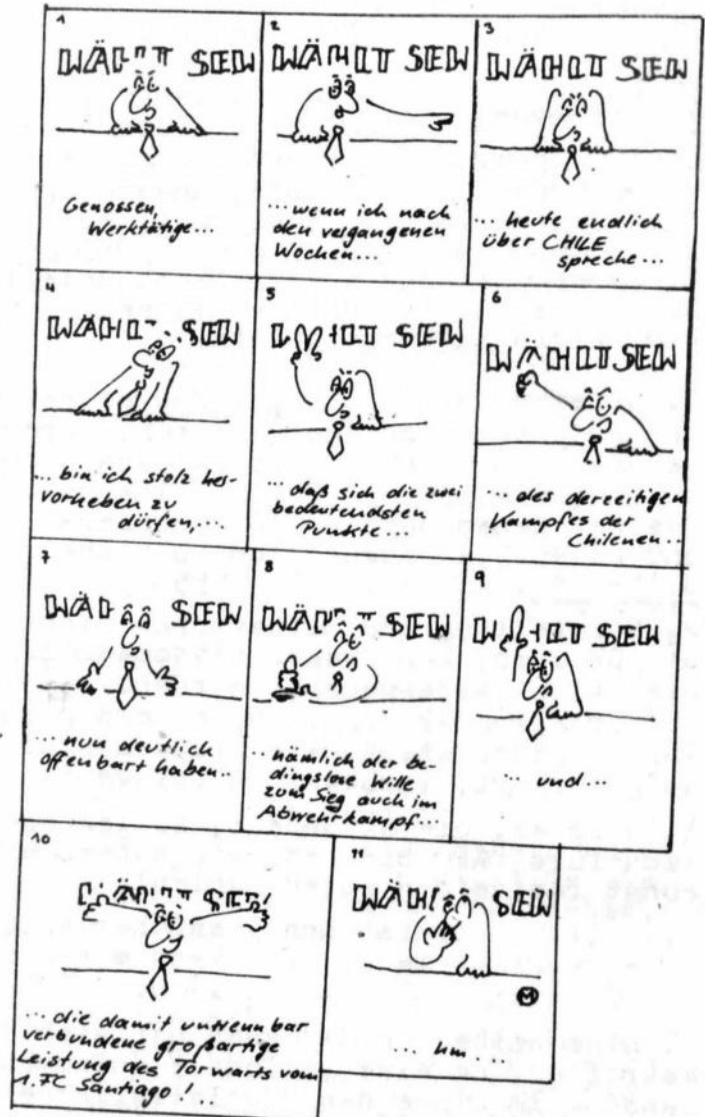 1
WÄHLT SEW
Genossen,
Werktätige...
2
WÄHLT SEW
... wenn ich nach
den vergangenen
Wochen...
3
WÄHLT SEW
... heute endlich
über CHILE
spreche...
4
WÄHLT SEW
... bin ich stolz her-
vorheben zu
dürfen,...
5
WÄHLT SEW
... daß sich die zwei
bedeutendsten
Punkte...
6
WÄHLT SEW
... des derzeitigen
Kampfes der
Chilenen...
7
WÄH SEW
... nun deutlich
offenbart haben...
8
WÄHLT SEW
... nämlich der be-
dingslose Wille
zum Sieg auch im
Abwehrkampf...
9
WÄHLT SEW
... und...
10
WÄHLT SEW
... die damit untrennbar
verbundene großartige
Leistung des Torwarts vom
1. FC Santiago!...
11
WÄHLT SEW
M
... hm...